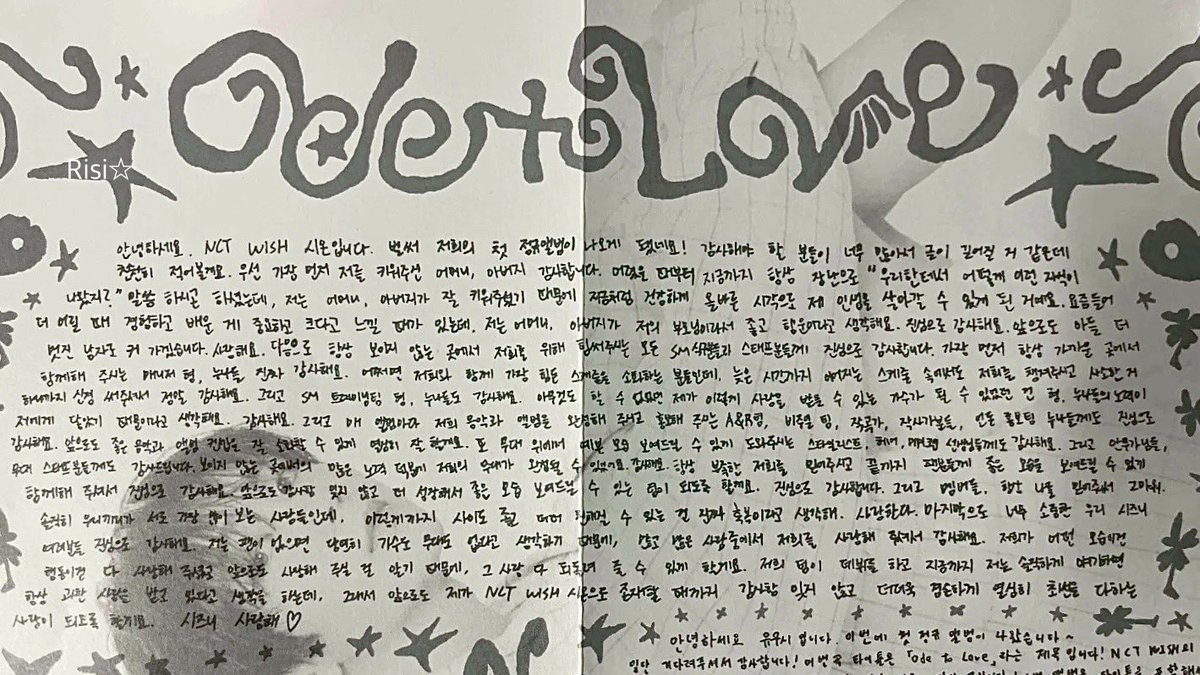 Ode to Love
Risi☆
안녕하세요. NCT WISH 시온입니다. 벌써 저희의 첫 정규앨범이 나오게 됐네요! 감사해야 할 분들이 너무 많아서 글이 길어질 거 같은데
천천히 적어볼게요. 우선 가장 먼저 저를 키워주신 어머니, 아버지 감사합니다. 어렸을 때부터 지금까지 항상 장난으로 "우리한테서 어떻게 이런 자식이
나왔지?" 말씀 하시곤 하셨는데, 저는 어머니, 아버지가 잘 키워주셨기 때문에 지금처럼 건강하게 올바른 시각으로 제 인생을 살아갈 수 있게 된 거예요. 요즘들어
더 어릴 때 경험하고 배운 게 중요하고 크다고 느낄 때가 있는데, 저는 어머니, 아버지가 저의 부모님이라서 좋고 행운이라고 생각해요. 진심으로 감사해요. 앞으로도 아들 더
멋진 남자로 커 가겠습니다. 사랑해요. 다음으로 항상 보이지 않는 곳에서 저희를 위해 힘써주시는 모든 SM 식구분들과 스태프분들께 진심으로 감사합니다. 가장 먼저 항상 가까운 곳에서
함께해 주시는 매니저 형, 누나들 진짜 감사해요. 어쩌면 저희와 함께 가장 힘든 스케줄을 소화하는 분들인데, 늦은 시간까지 이어지는 스케줄 속에서도 저희를 챙겨주시고 사소한 거
하나까지 신경 써주셔서 정말 감사해요. 그리고 SM 트레이닝팀 형, 누나들도 감사해요. 아무것도 할 수 없었던 제가 이렇게 사랑을 받을 수 있는 가수가 될 수 있었던 건 형, 누나들의 노력이
저에게 닿았기 때문이라고 생각해요. 감사해요. 그리고 매 앨범마다 저희 음악과 앨범을 완성해 주고 함께해 주는 A&R팀, 비주얼 팀, 작곡가, 작사가분들, 언론 홍보팀 누나들께도 진심으로
감사해요. 앞으로도 좋은 음악과 앨범 컨셉을 잘 소화할 수 있게 열심히 잘 할게요. 또 무대 위에서 예쁜 모습 보여드릴 수 있게 도와주시는 스타일리스트, 헤어, 메이크업 선생님들께도 감사해요. 그리고 안무가님들,
무대 스태프분들께도 감사드립니다. 보이지 않는 곳에서의 많은 노력 덕분에 저희의 무대가 완성될 수 있었어요. 감사해요. 항상 부족한 저희를 믿어주시고 끝까지 팬분들께 좋은 모습을 보여드릴 수 있게
함께해 주셔서 진심으로 감사해요. 앞으로도 감사함 잊지 않고 더 성장해서 좋은 모습 보여드릴 수 있는 팀이 되도록 할게요. 진심으로 감사합니다. 그리고 멤버들, 항상 나를 믿어줘서 고마워.
솔직히 우리끼리가 서로 가장 많이 보는 사람들인데, 이렇게까지 사이도 좋고 더더 친해질 수 있는 건 진짜 축복이라고 생각해. 사랑한다. 마지막으로 너무 소중한 우리 시즈니
여러분들 진심으로 감사해요. 저는 팬이 없으면 당연히 가수도 무대도 없다고 생각하기 때문에, 많고 많은 사람 중에서 저희를 사랑해 줘서 감사해요. 저희가 어떤 모습이건
행동이건 다 사랑해 주셨고 앞으로도 사랑해 주실 걸 알기 때문에, 그 사랑 다 되돌려 줄 수 있게 할게요. 저희 팀이 데뷔를 하고 지금까지 저는 솔직하게 얘기하면
항상 과분한 사랑을 받고 있다고 생각을 하는데, 그래서 앞으로도 제가 NCT WISH 시온으로 존재할 때까지 감사함 잊지 않고 더더욱 겸손하게 열심히 최선을 다하는
사람이 되도록 할게요. 시즈니 사랑해♡
안녕하세요 유우시 입니다. 이번에 첫 정규 앨범이 나왔습니다~
일단 기다려주셔서 감사합니다! 이번 타이틀은 「Ode to Love」라는 제목 입니다! NCT WISH의